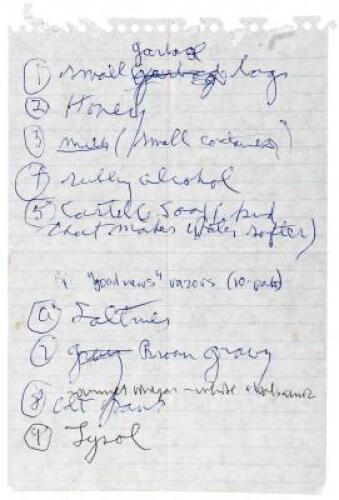 garbage
① small garbage bags
② Honey
③ milk (small container)
④ rubbing alcohol
⑤ Castile Soap (kind
that makes water softer)
"good news" razors (10-pak)
⑥ Saltines
⑦ gravy Brown gravy
gourmet vinegar - white & balsamic
⑧ cat
⑨ Lysol